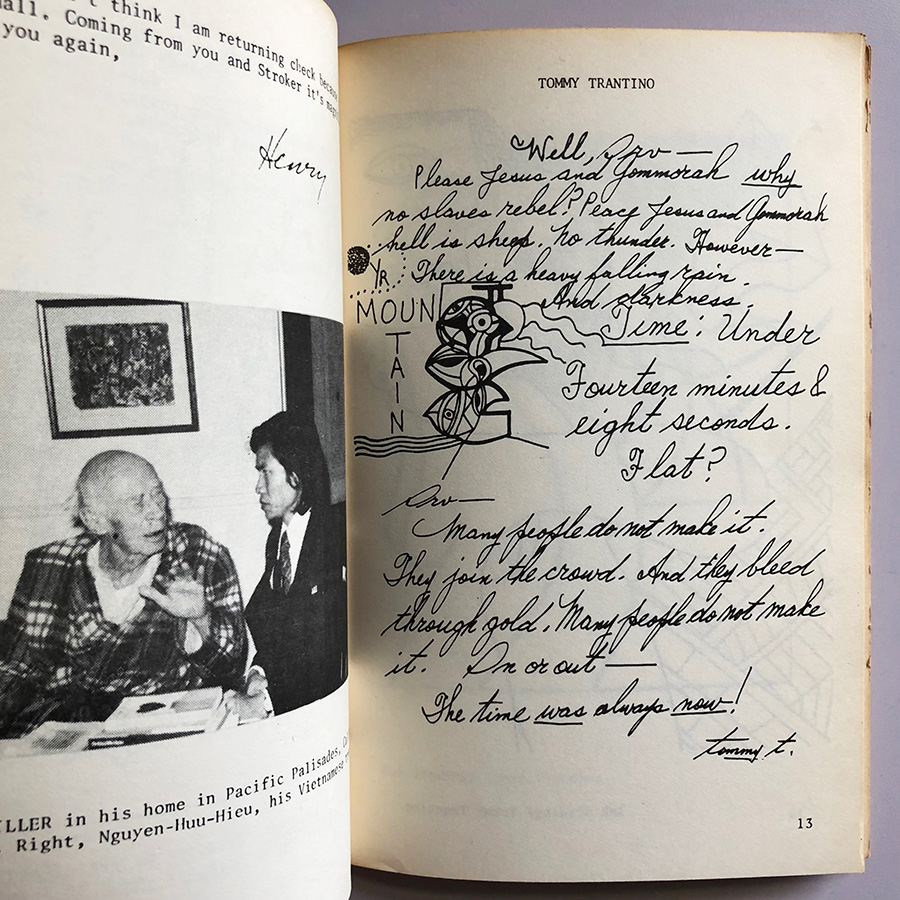 think I am returning check because
all. Coming from you and Stroker it's
you again,
Henry
LLER in his home in Pacific Palisades,
Right, Nguyen-Huu-Hieu, his Vietnamese
TOMMY TRANTINO
Well, Irv —
Please Jesus and Gommorah why
no slaves rebel? Peace Jesus and Gommorah
hell is sheep. No thunder. However —
YR There is a heavy falling rain.
MOUN
TAIN
And darkness.
Time: Under
Fourteen minutes &
eight seconds.
Flat?
Irv —
Many people do not make it.
They join the crowd. And they bleed
through gold. Many people do not make
it. In or out —
The time was always now!
tommy t.
13